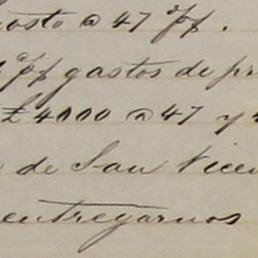 osto @ 47 p/f.
p/f gastos de pr
£ 4000 @ 47 y
de San Vicen
entregarnos